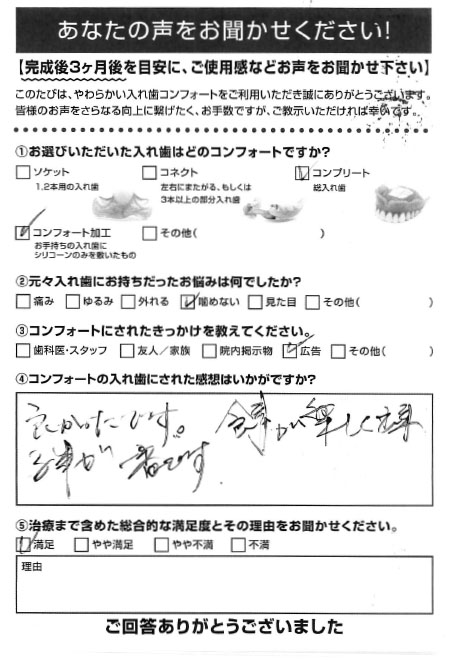 あなたの声をお聞かせください!
【完成後3ヶ月後を目安に、ご使用感などお声をお聞かせ下さい】
このたびは、やわらかい入れ歯コンフォートをご利用いただき誠にありがとうございます。
皆様のお声をさらなる向上に繋げたく、お手数ですが、ご教示いただければ幸いです。
①お選びいただいた入れ歯はどのコンフォートですか?
ソケット コネクト コンプリート
1,2本用の入れ歯 左右にまたがる、もしくは 総入れ歯
3本以上の部分入れ歯
コンフォート加工 その他( )
お手持ちの入れ歯に
シリコーンのみを敷いたもの
②元々入れ歯にお持ちだったお悩みは何でしたか?
痛み ゆるみ 外れる 噛めない 見た目 その他( )
③コンフォートにされたきっかけを教えてください。
歯科医・スタッフ 友人/家族 院内掲示物 広告 その他( )
④コンフォートの入れ歯にされた感想はいかがですか?
良かったです。食事が楽しく
事が 一番です
⑤治療まで含めた総合的な満足度とその理由をお聞かせください。
満足 やや満足 やや不満 不満
理由
ご回答ありがとうございました